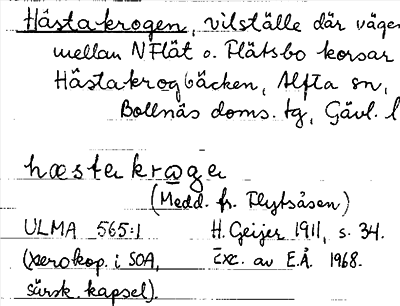 Håstakrogen, vilställe där vägen
mellan NFlät o. Flätsbo korsar
Håstakrogbäcken, Alfta sn,
Bollnäs doms. tg, Gävl. l
hæstakrøga
(Medd. fr. Flytsåsen)
ULMA 565:1 H. Geijer 1911, s. 34.
(xerokop. i SOA, Exc. av E.Å. 1968.
särsk. kapsel).